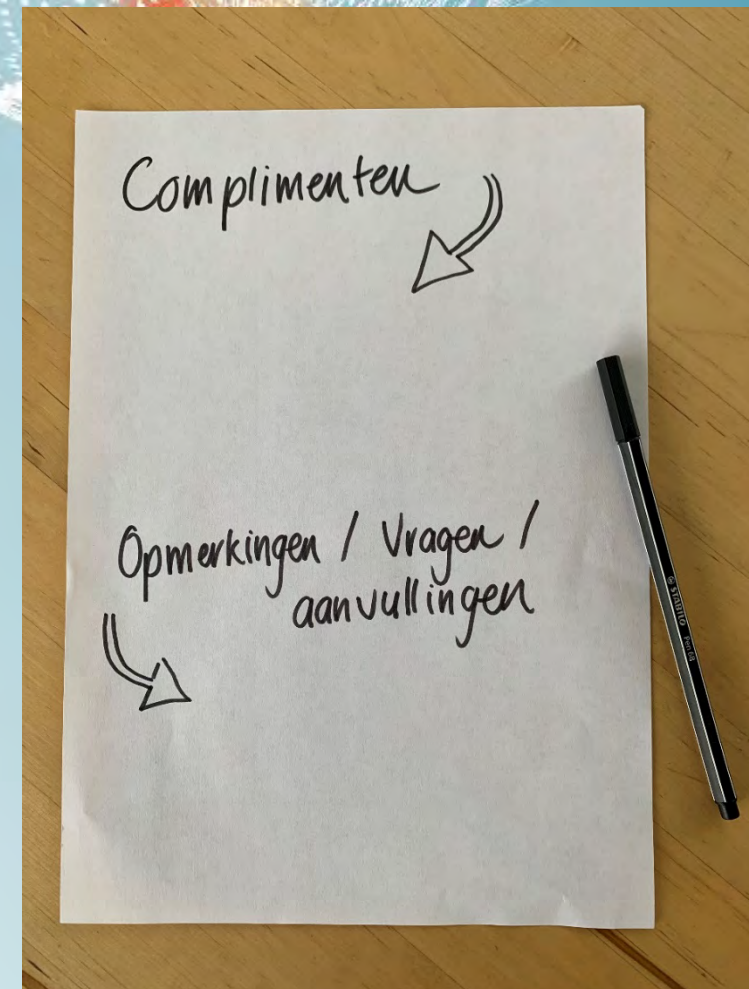 Complimenten
Opmerkingen / Vragen /
aanvullingen
STABILO Pen 68